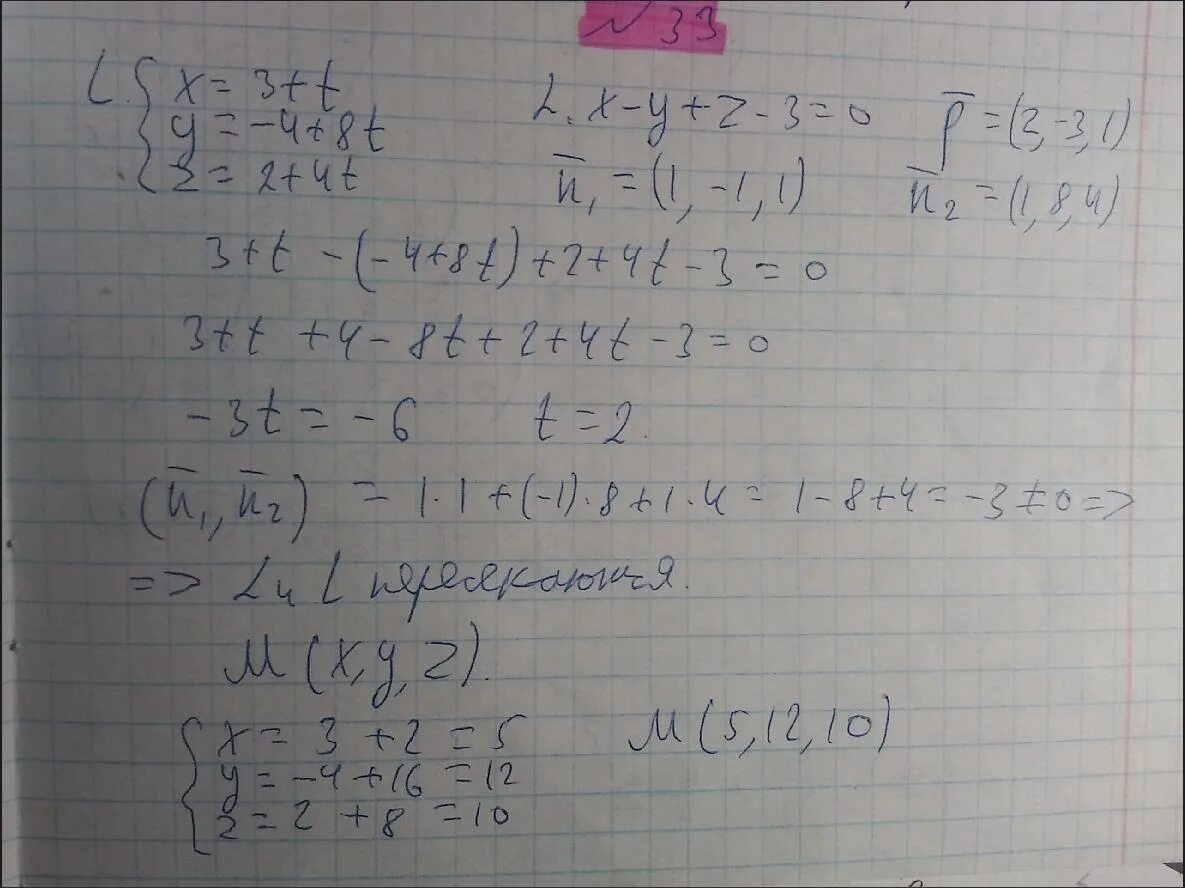 № 33
L. { x = 3+t
y = -4+8t
z = 2+4t
L. x-y+z-3=0
n̄₁ = (1, -1, 1)
p̄ = (2, -3, 1)
n̄₂ = (1, 8, 4)
3+t - (-4+8t) + 2+4t - 3 = 0
3+t + 4 - 8t + 2 + 4t - 3 = 0
-3t = -6 t = 2.
(n̄₁, n̄₂) = 1·1 + (-1)·8 + 1·4 = 1-8+4 = -3 ≠ 0 =>
=> L и L пересекаются.
M (x, y, z).
{ x = 3 + 2 = 5
y = -4 + 16 = 12
z = 2 + 8 = 10
M (5, 12, 10)